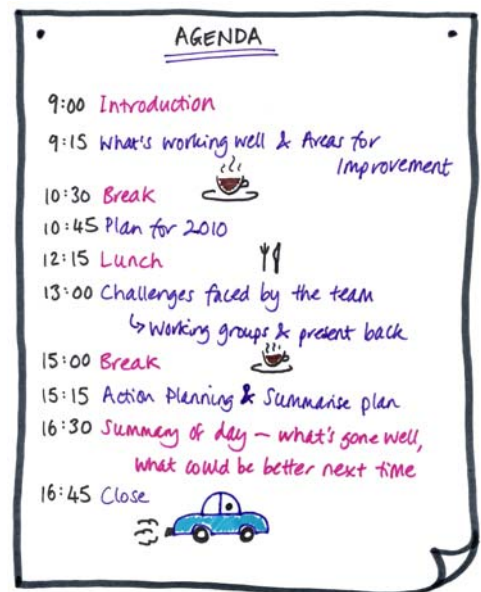 AGENDA
9:00 Introduction
9:15 What's working well & Areas for
Improvement
10:30 Break
10:45 Plan for 2010
12:15 Lunch
13:00 Challenges faced by the team
↳ Working groups & present back
15:00 Break
15:15 Action Planning & Summarise plan
16:30 Summary of day – what's gone well,
what could be better next time
16:45 Close